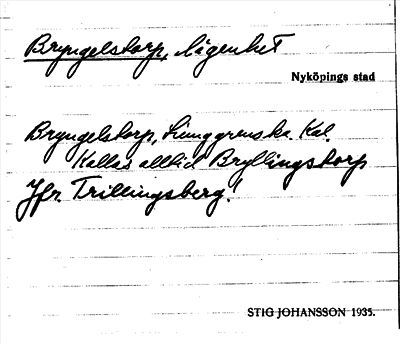 Bryngelstorp, lägenhet
Nyköpings stad
Bryngelstorp, Kal.
Kallas alltid Bryllingstorp
Jfr. Trillingsberg!
STIG JOHANSSON 1935.